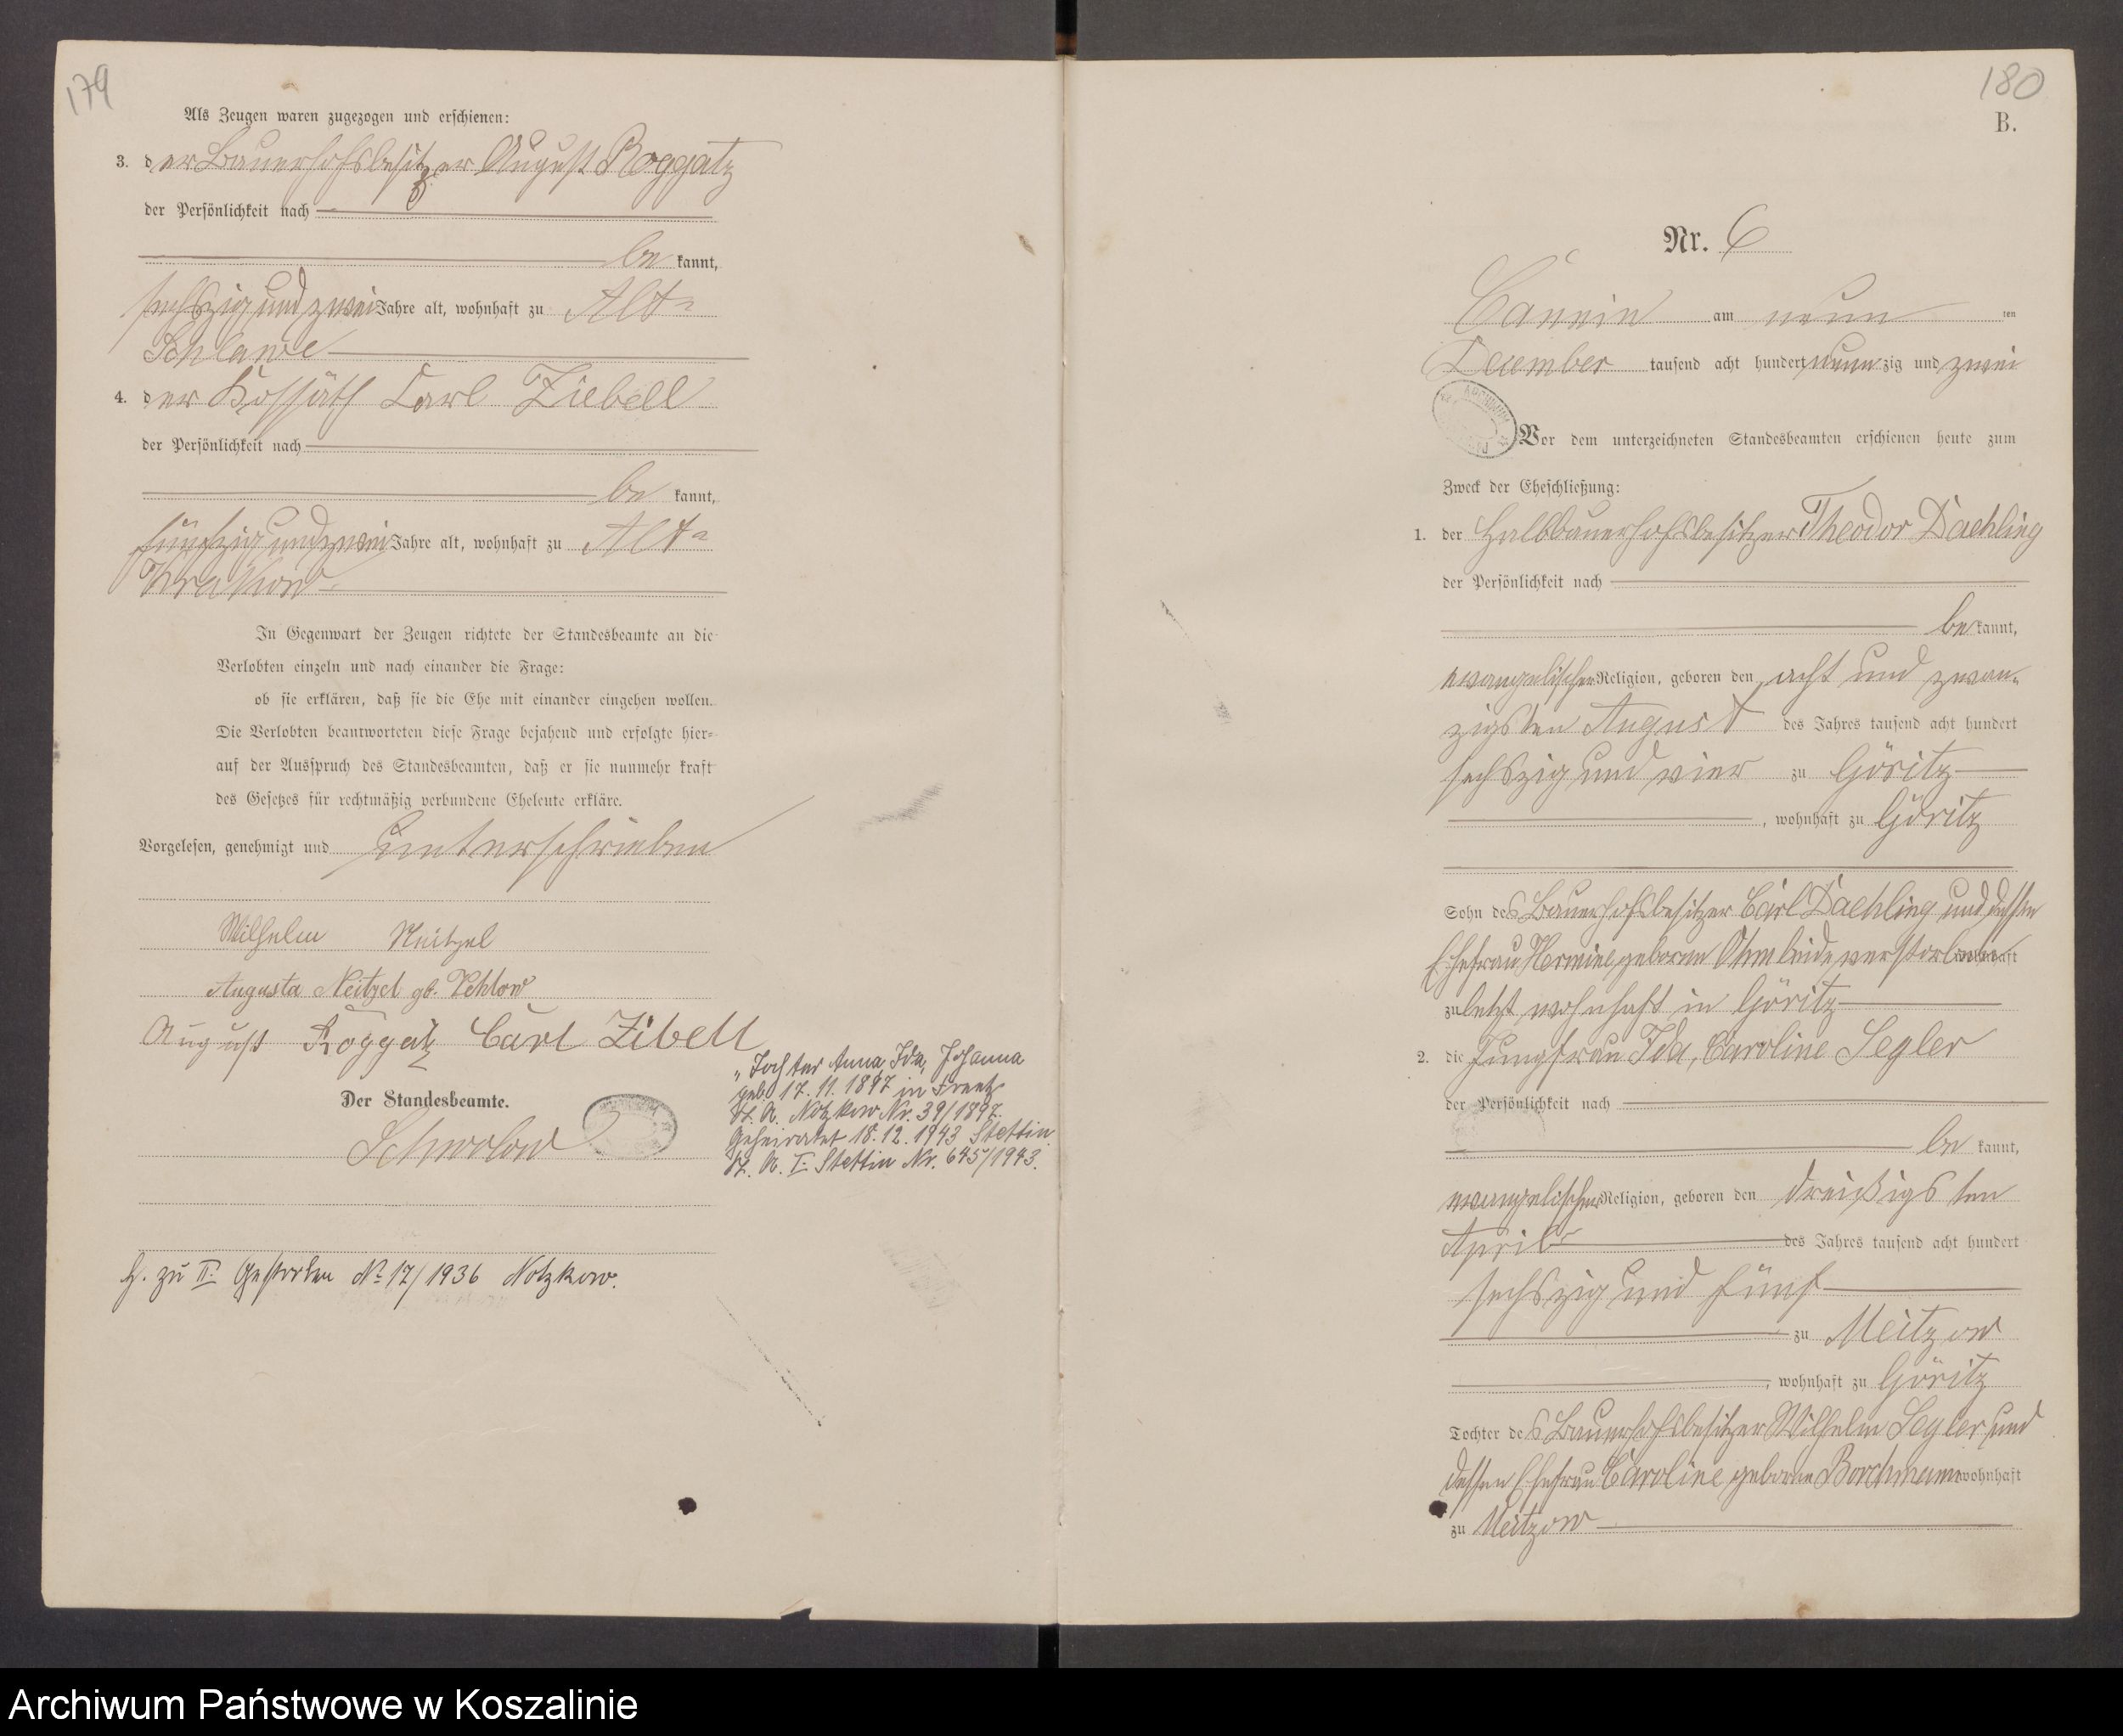 179
Als Zeugen waren zugezogen und erschienen:
3. der Bauerhofsbesitzer August Roggatz
der Persönlichkeit nach
be kannt,
sechszig und zwei Jahre alt, wohnhaft zu Alt=
Schlawe
4. der Kossäth Carl Ziebell
der Persönlichkeit nach
be kannt,
fünfzig und zwei Jahre alt, wohnhaft zu Alt=
Krakow
In Gegenwart der Zeugen richtete der Standesbeamte an die
Verlobten einzeln und nach einander die Frage:
ob sie erklären, daß sie die Ehe mit einander eingehen wollen.
Die Verlobten beantworteten diese Frage bejahend und erfolgte hier=
auf der Ausspruch des Standesbeamten, daß er sie nunmehr kraft
des Gesetzes für rechtmäßig verbundene Eheleute erkläre.
Vorgelesen, genehmigt und unterschrieben
Wilhelm Neitzel
Augusta Neitzel gb. Vehlow
August Roggatz Carl Zibell
Der Standesbeamte.
"Tochter Anna, Ida, Johanna
geb. 17.11.1897 in Freetz
St. A. Notzkow Nr. 39/1897.
Geheiratet 18.12.1943 Stettin
St. A. I. Stettin Nr. 645/1943.
H. zu II. Gestorben No 17/1936 Notzkow.
180
B.
Nr. 6
Cannin am neun ten
December tausend acht hundert neunzig und zwei
Vor dem unterzeichneten Standesbeamten erschienen heute zum
Zweck der Eheschließung:
1. der Halbbauerhofsbesitzer Theodor Daehling
der Persönlichkeit nach
be kannt,
evangelischer Religion, geboren den acht und zwan=
zigsten August des Jahres tausend acht hundert
sechszig und vier zu Göritz
, wohnhaft zu Göritz
Sohn des Bauerhofsbesitzer Carl Daehling und dessen
Ehefrau Hermine geborne Ohm beide verstorben wohnhaft
zuletzt wohnhaft in Göritz
2. die Jungfrau Ida, Caroline Segler
der Persönlichkeit nach
be kannt,
evangelischer Religion, geboren den dreißigsten
April des Jahres tausend acht hundert
sechszig und fünf
zu Meitzow
, wohnhaft zu Göritz
Tochter des Bauerhofsbesitzer Wilhelm Segler und
dessen Ehefrau Caroline geborne Borchmann wohnhaft
zu Meitzow
Archiwum Państwowe w Koszalinie